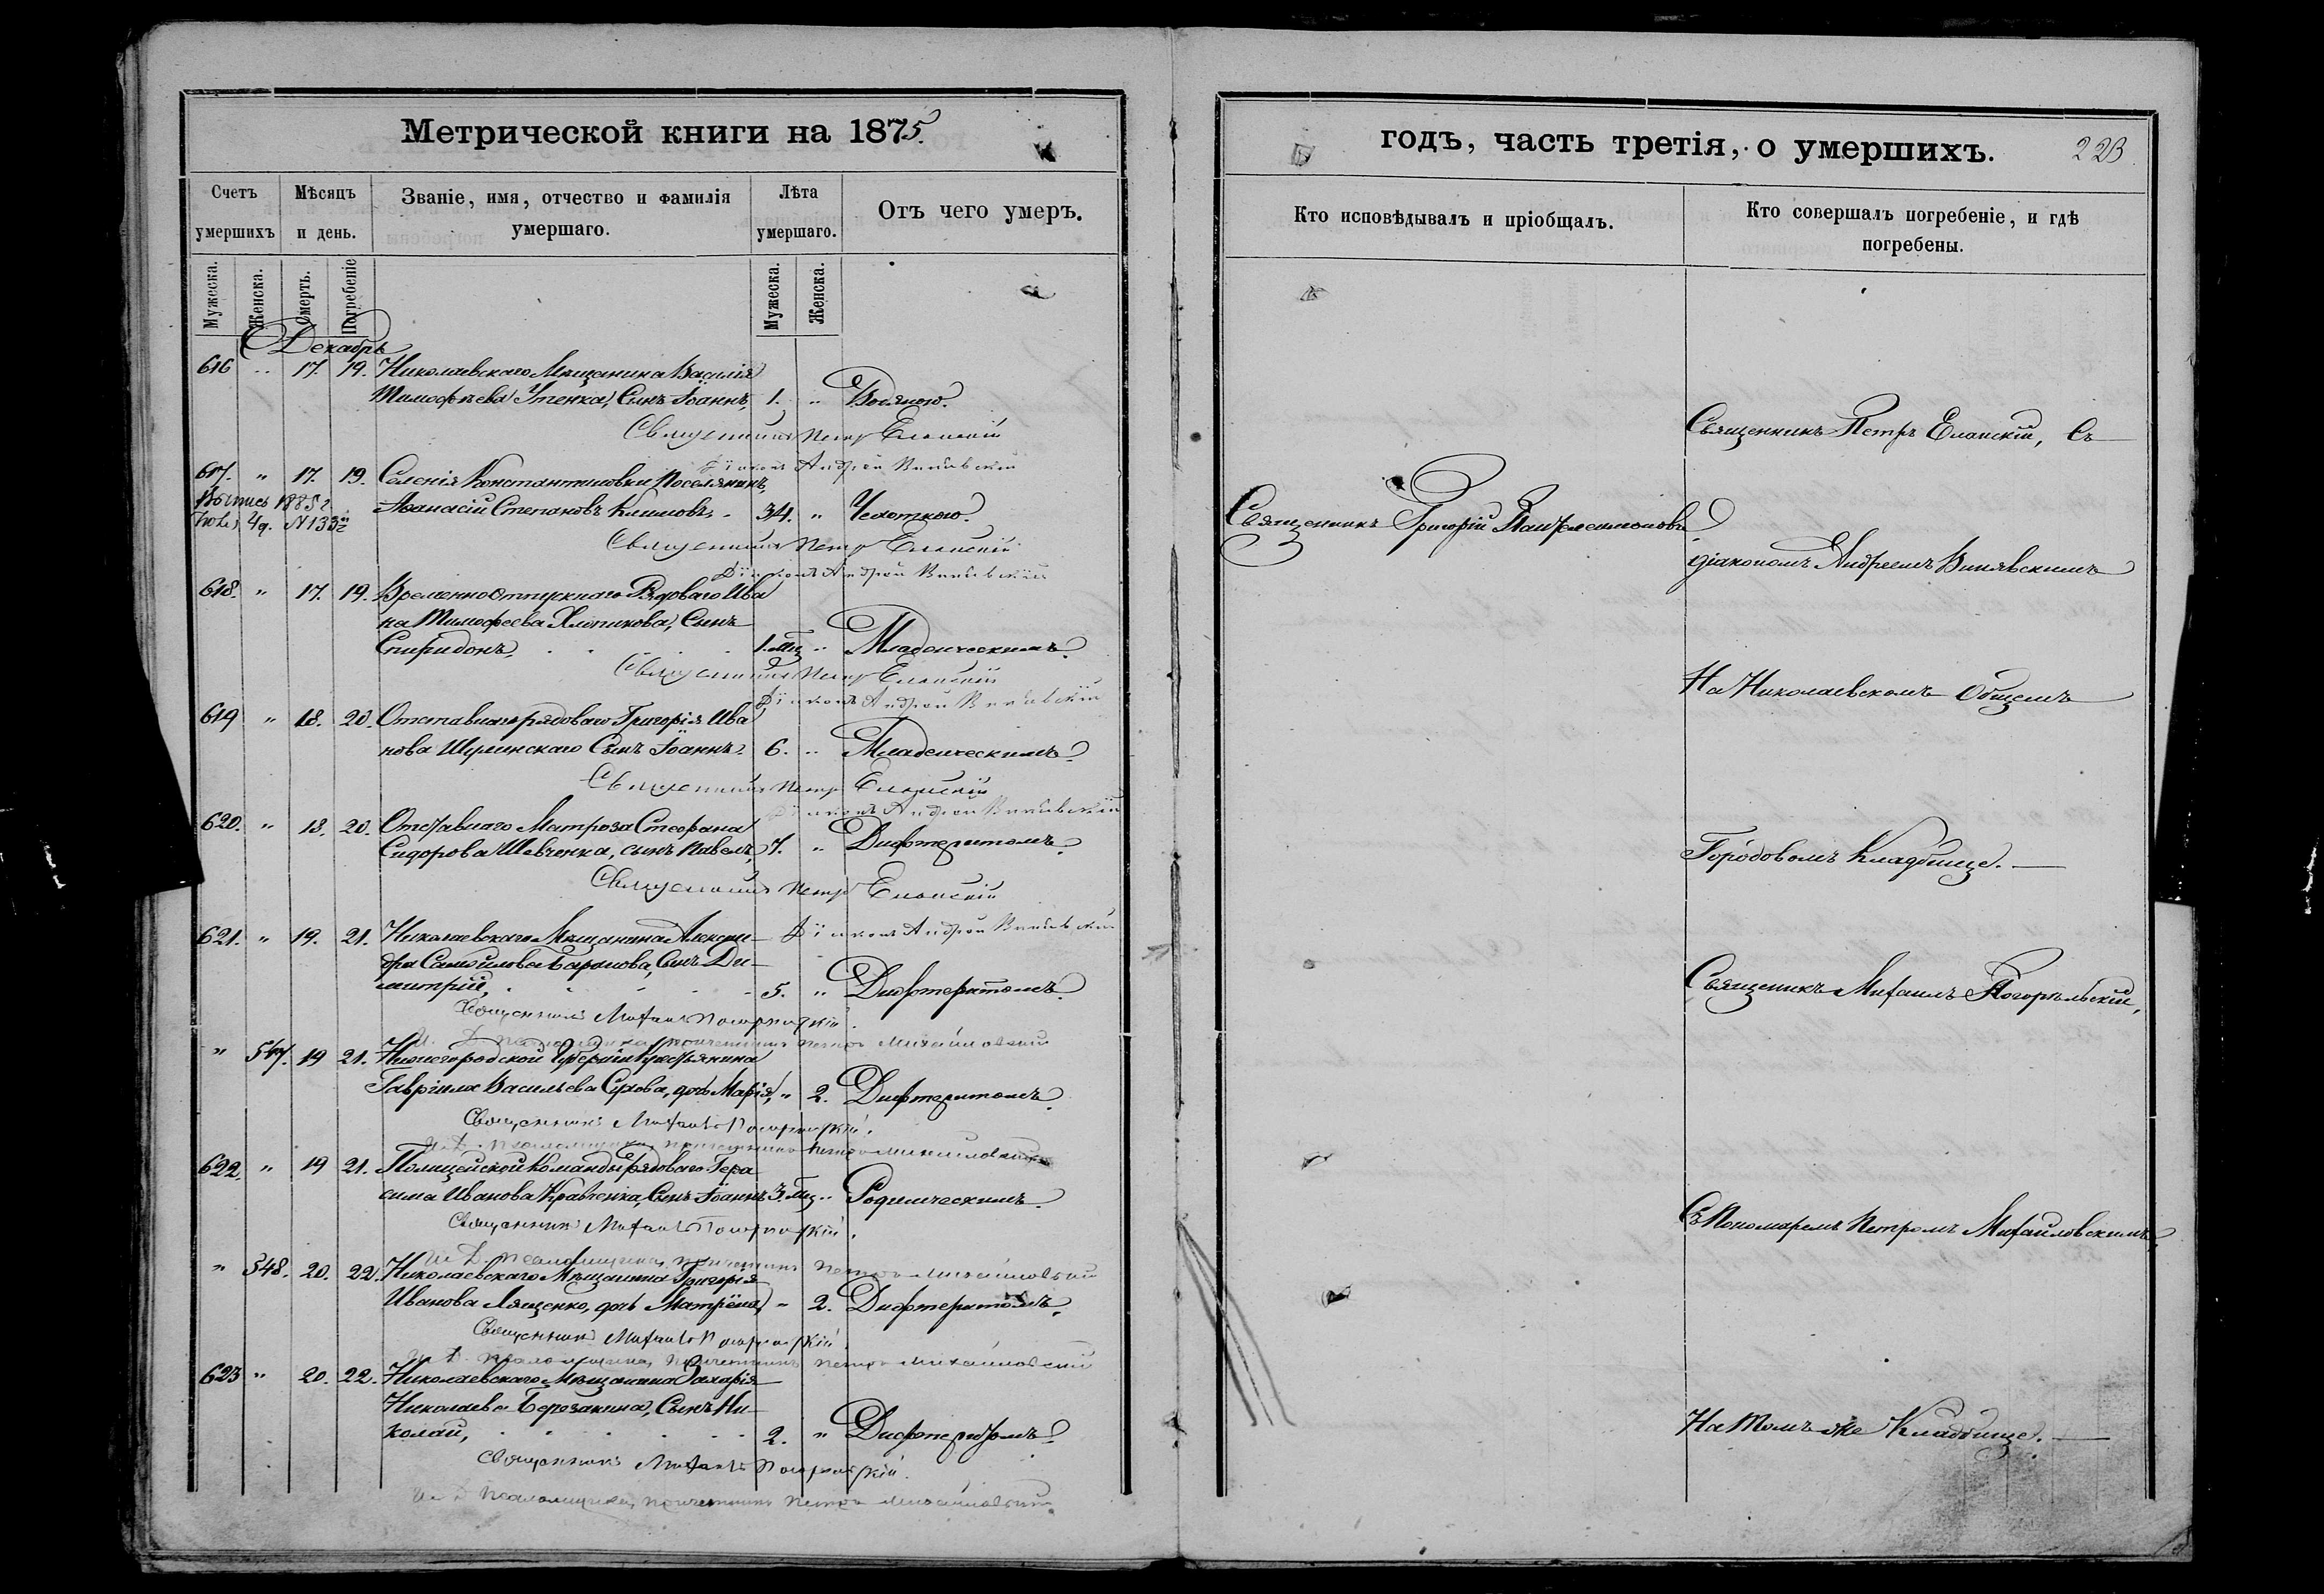 Метрической книги на 1875.
Счетъ умершихъ
Мѣсяцъ и день.
Званіе, имя, отчество и фамилія умершаго.
Лѣта умершаго.
Отъ чего умеръ.
Мужеска.
Женска.
Смерть.
Погребеніе
Мужеска.
Женска.
Декабрь
616 " 17. 19. Николаевскаго Мѣщанина Василія
Тимофѣева Утенка, Сынъ Іоаннъ, 1. " Водяною.
Священникъ Петръ Еланскій
Діаконъ Андрей
617. " 17. 19. Селенія Константиновки Поселянинъ,
Аѳанасій Степановъ Климовъ, - 34. " Чахоткою.
Выпись 1885 г.
Священникъ Петръ Еланскій
Діаконъ Андрей
618. " 17. 19. Временно Отпускнаго Рядоваго Ива
на Тимофеева Хлопикова, Сынъ
Спиридонъ, 1. мц " Младенческимъ.
Священникъ Петръ Еланскій
Діаконъ Андрей
619 " 18. 20. Отставнаго рядоваго Григорія Ива
нова Шулинскаго Сынъ Іоаннъ. 6. " Младенческимъ.
Священникъ Петръ Еланскій
Діаконъ Андрей
620. " 18. 20. Отставнаго Матроза Стефана
Сидорова Шевченка, сынъ Павелъ, 7. " Дифтеритомъ.
Священникъ Петръ Еланскій
Діаконъ Андрей
621. " 19. 21. Николаевскаго Мѣщанина Алексан-
дра Самойлова Баранова, Сынъ Ди-
митрій, 5. " Дифтеритомъ.
Священникъ Михаилъ Погорѣльскій
И. Д. псаломщика, причетникъ Петръ Михайловскій
" 547. 19 21. Нижегородской Губерніи Крестьянина
Гавріила Васильева Сухова, дочь Марія, " 2. Дифтеритомъ.
Священникъ Михаилъ Погорѣльскій.
И. Д. псаломщика, причетникъ Петръ Михайловскій
622. " 19 21. Полицейской Команды рядоваго Гера
сима Иванова Кравченка, Сынъ Іоаннъ 3. мц " Родимческимъ.
Священникъ Михаилъ Погорѣльскій.
И. Д. псаломщика, причетникъ Петръ Михайловскій
" 548. 20. 22. Николаевскаго Мѣщанина Григорія
Иванова Лященко, дочь Матрёна, " 2. Дифтеритомъ.
Священникъ Михаилъ Погорѣльскій.
И. Д. псаломщика, причетникъ Петръ Михайловскій
623 " 20. 22. Николаевскаго Мѣщанина Захарія
Николаева Березакина, Сынъ Ни-
колай, 2. " Дифтеритомъ.
Священникъ Михаилъ Погорѣльскій.
И. Д. псаломщика, причетникъ Петръ Михайловскій
годъ, часть третія, о умершихъ. 223
Кто исповѣдывалъ и пріобщалъ.
Кто совершалъ погребеніе, и гдѣ погребены.
Священникъ Петръ Еланскій, Съ
Священникъ Григорій
діакономъ Андреемъ
На Николаевскомъ Общемъ
Городовомъ Кладбище.
Священникъ Михаилъ Погорѣльскій,
Съ Пономаремъ Петромъ Михайловскимъ.
На Томъ же Кладбище.